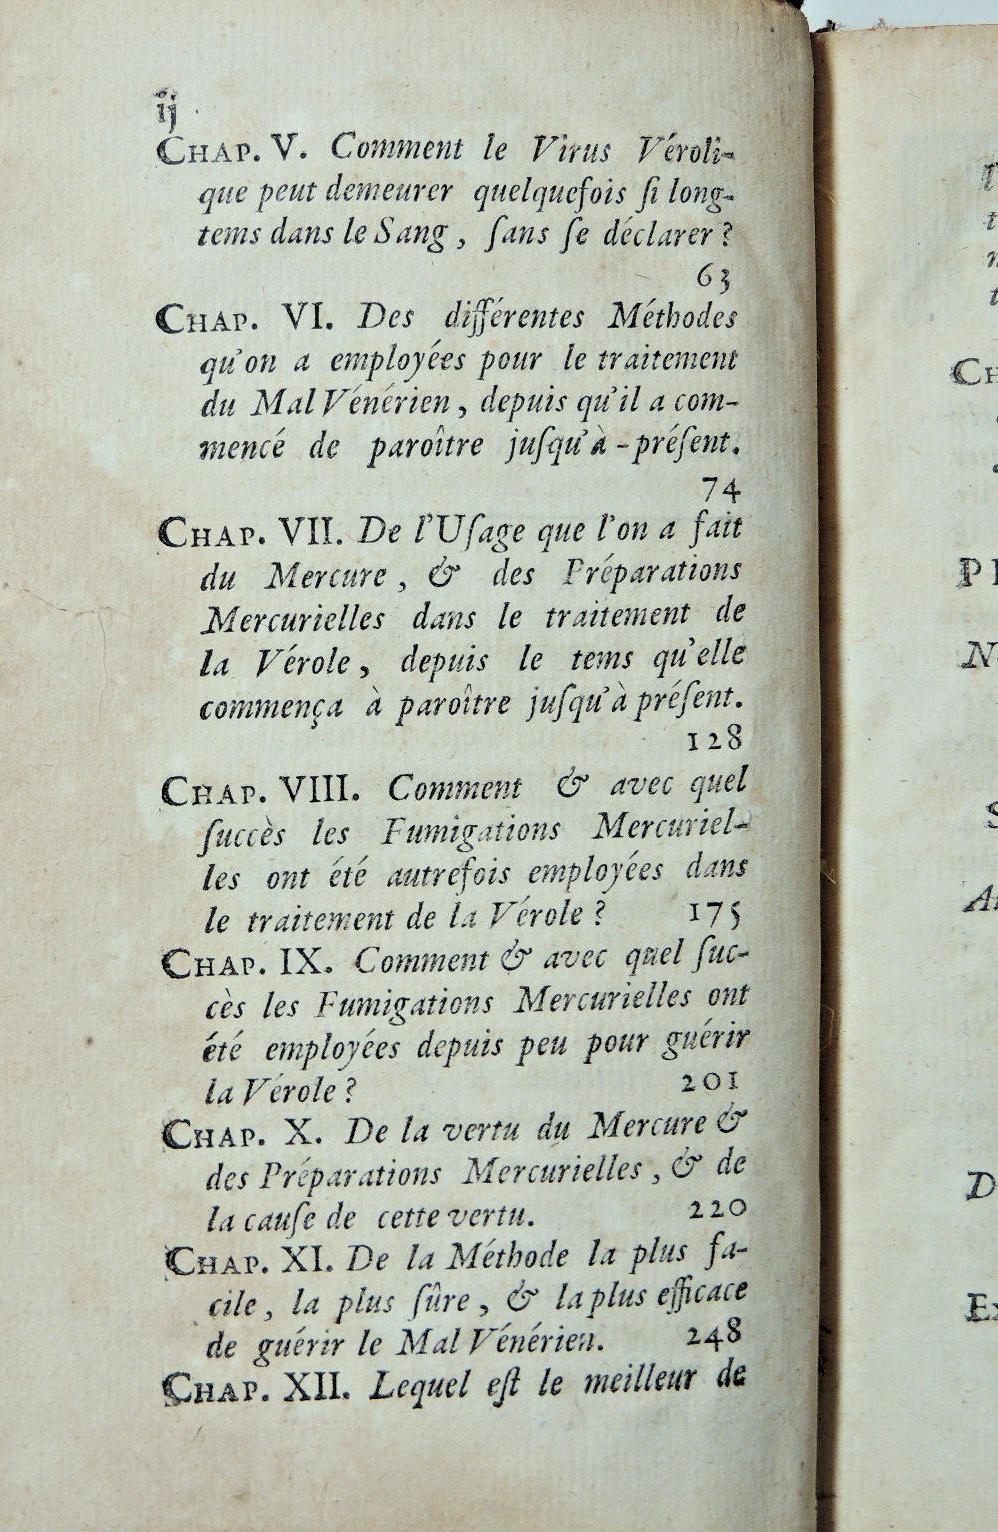 ij
CHAP. V. Comment le Virus Véroli-
que peut demeurer quelquefois ſi long-
tems dans le Sang, ſans ſe déclarer?
63
CHAP. VI. Des différentes Méthodes
qu'on a employées pour le traitement
du Mal Vénérien, depuis qu'il a com-
mencé de paroître juſqu'à-préſent.
74
CHAP. VII. De l'Uſage que l'on a fait
du Mercure, & des Préparations
Mercurielles dans le traitement de
la Vérole, depuis le tems qu'elle
commença à paroître juſqu'à préſent.
128
CHAP. VIII. Comment & avec quel
ſuccès les Fumigations Mercuriel-
les ont été autrefois employées dans
le traitement de la Vérole? 175
CHAP. IX. Comment & avec quel ſuc-
cès les Fumigations Mercurielles ont
été employées depuis peu pour guérir
la Vérole? 201
CHAP. X. De la vertu du Mercure &
des Préparations Mercurielles, & de
la cauſe de cette vertu. 220
CHAP. XI. De la Méthode la plus fa-
cile, la plus ſûre, & la plus efficace
de guérir le Mal Vénérien. 248
CHAP. XII. Lequel eſt le meilleur de